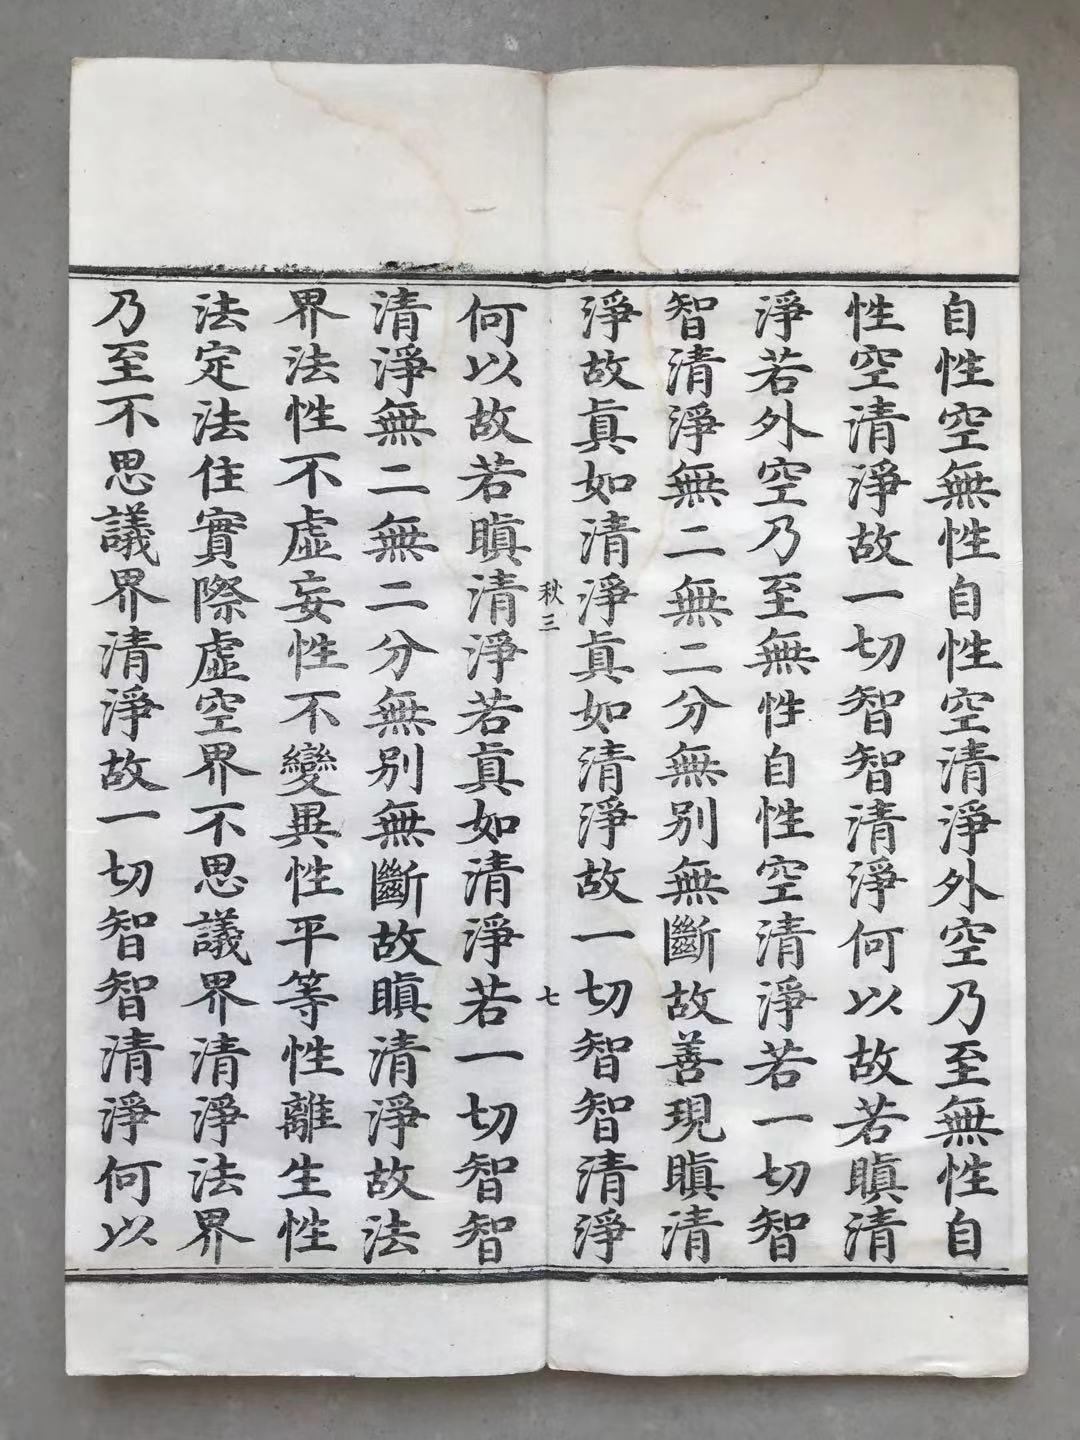 自性空無性自性空清淨外空乃至無性自
性空清淨故一切智智清淨何以故若瞋清
淨若外空乃至無性自性空清淨若一切智
智清淨無二無二分無別無斷故善現瞋清
淨故真如清淨真如清淨故一切智智清淨
秋三
七
何以故若瞋清淨若真如清淨若一切智智
清淨無二無二分無別無斷故瞋清淨故法
界法性不虛妄性不變異性平等性離生性
法定法住實際虛空界不思議界清淨法界
乃至不思議界清淨故一切智智清淨何以